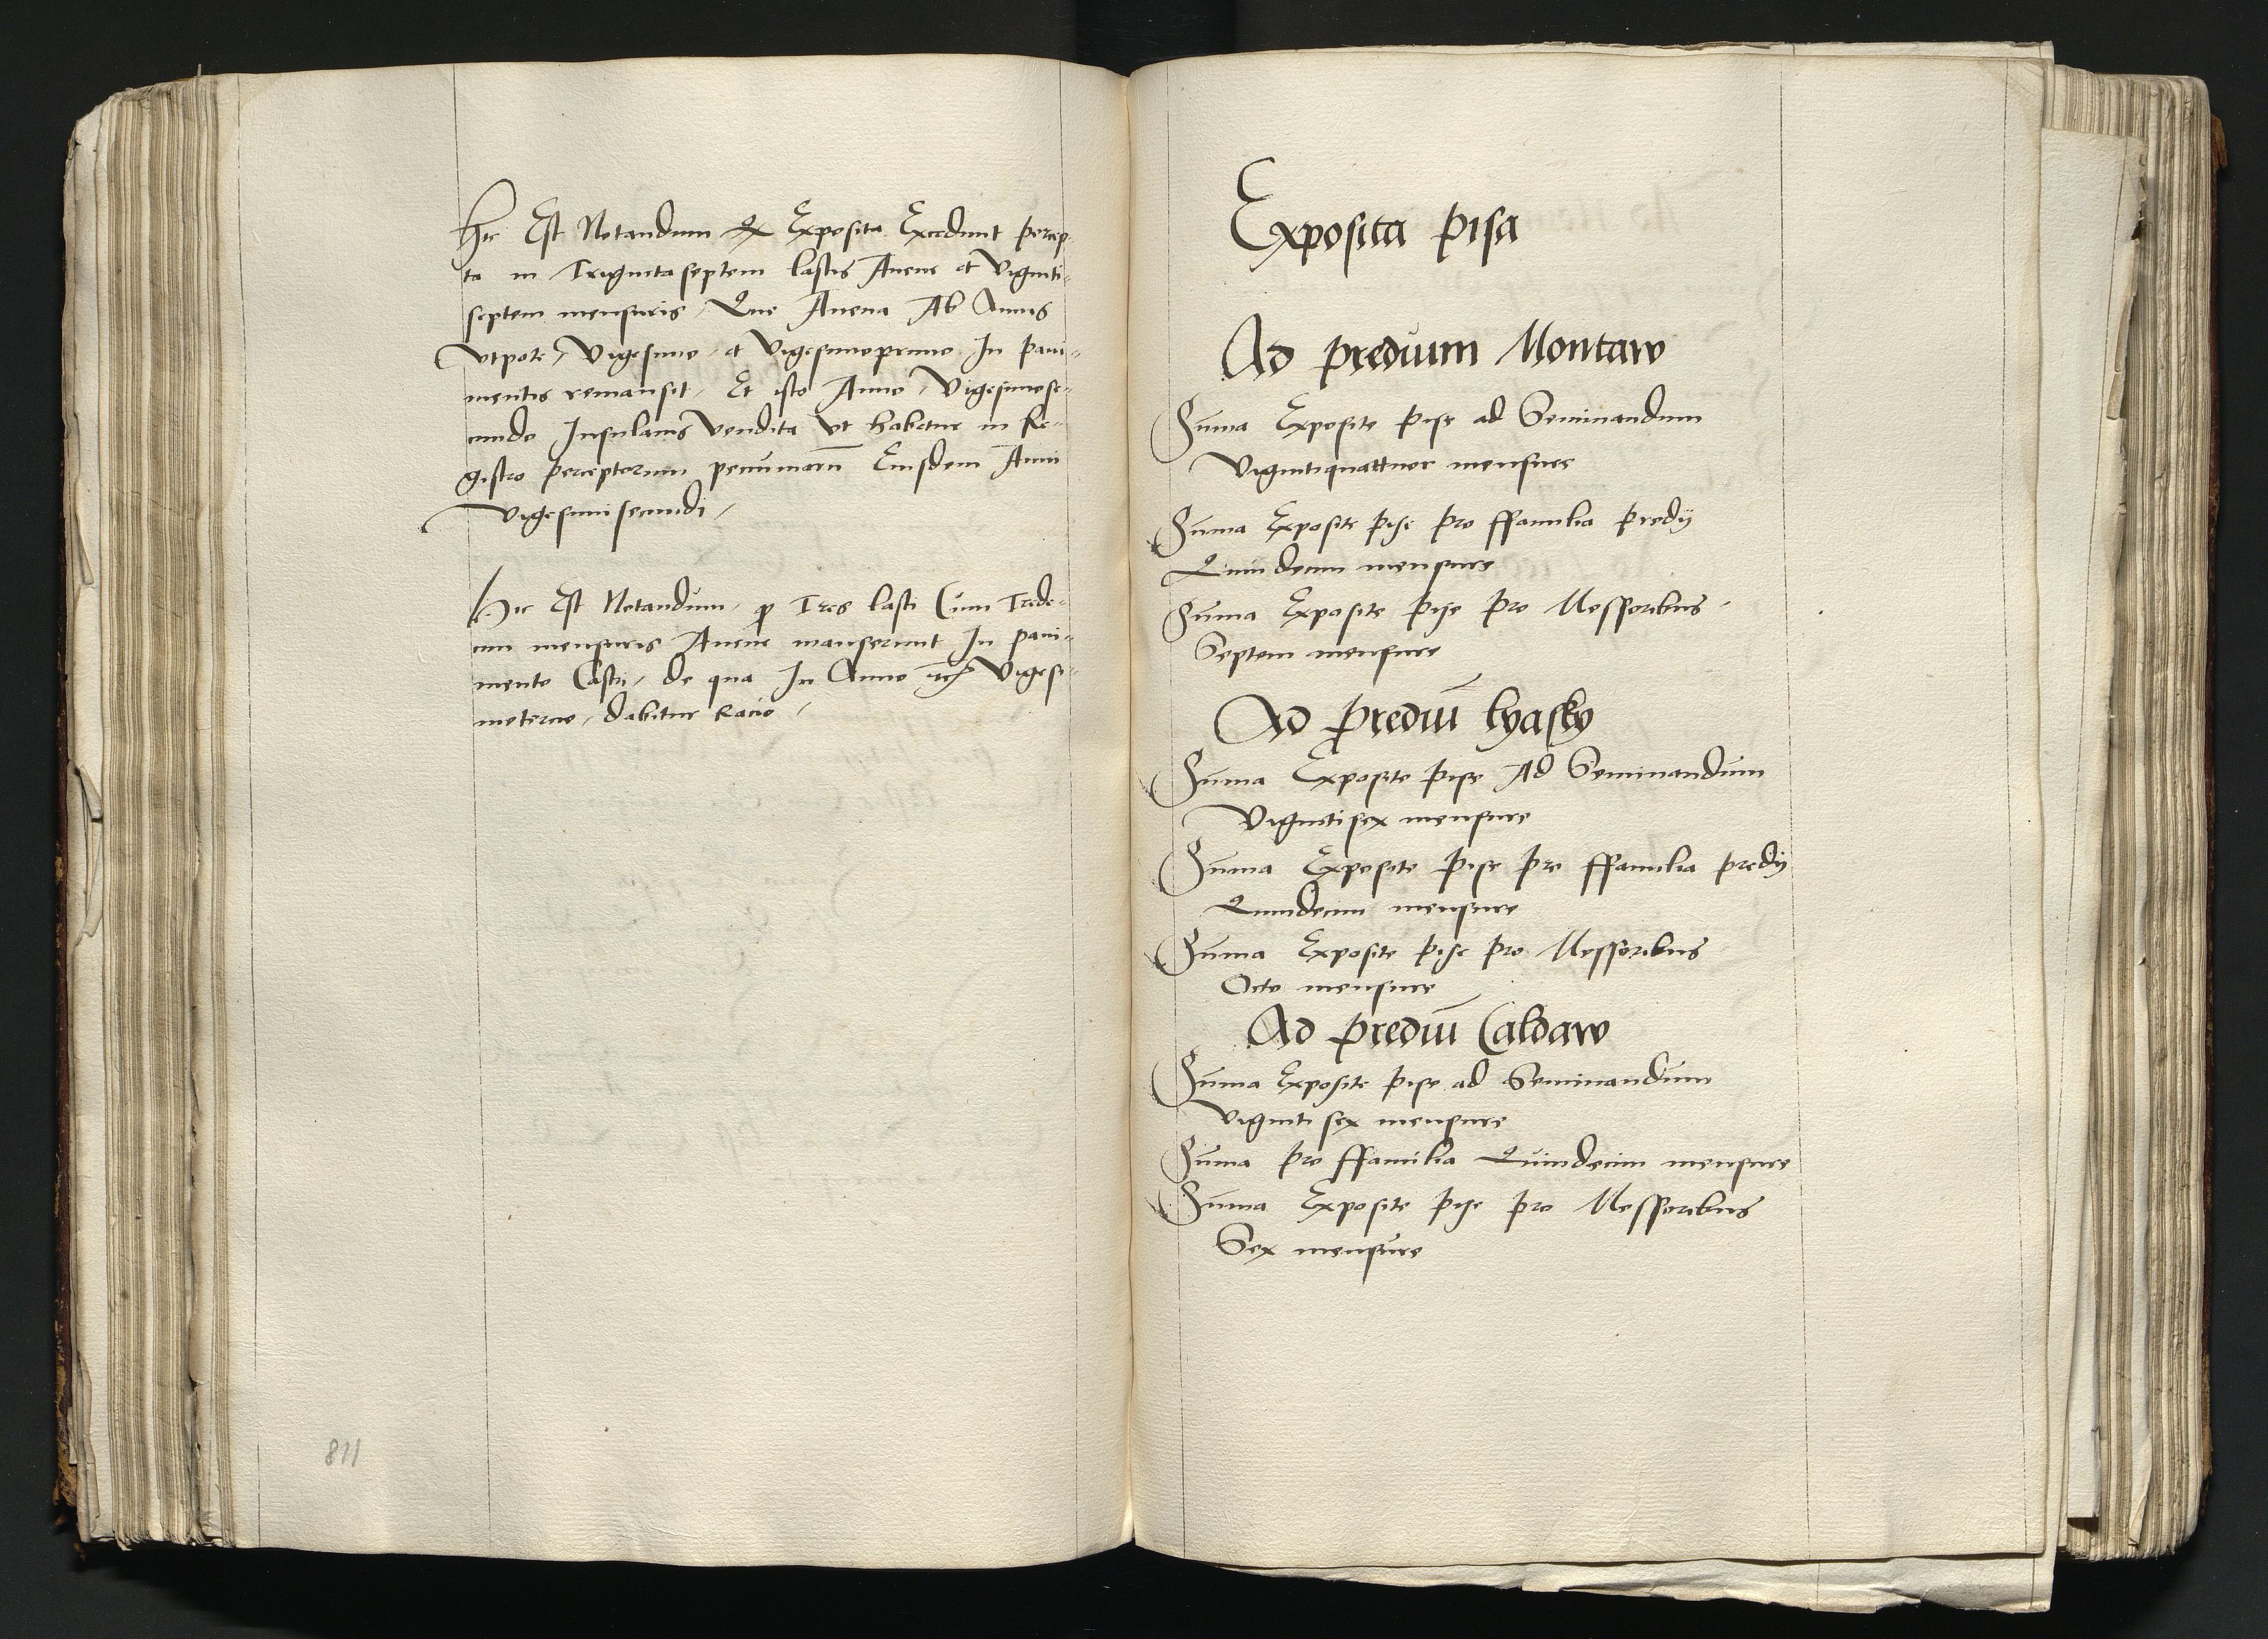 Hic Est Notandum Exposita Excedunt percep-
ta in Trigintaseptem lastis Auene et Viginti-
septem mensuris, Que Auena Ab Annis
Vtpote, Vigesimo, et Vigesimoprimo In paui-
mentis remansit, Et isto Anno, Vigesimose-
cundo Insulanis Vendita Vt habetur in Re-
gistro perceptorum pecuniarũ Eiusdem Anni
Vigesimisecundi,
Hic Est Notandum, Tres lasti Cum Trede-
cim mensuris Auene manserunt In paui-
mento Castri, de qua In Anno Vigesi-
motercio, dabitur Racio,
811
Exposita pisa
Ad predium Montaw
Suma Exposite pise ad Seminandum
Vigintiquattuor mensure
Suma Exposite pise pro ffamilia predij
Quindecim mensure
Suma Exposite pise pro Messoribus,
Septem mensure
Ad prediũ lyasky
Suma Exposite pise Ad Seminandum
Vigintisex mensure
Suma Exposite pise pro ffamilia predij
Quindecim mensure
Suma Exposite pise pro Messoribus
Octo mensure
Ad prediũ Caldaw
Suma Exposite pise ad Seminandum
Viginti sex mensure
Suma pro ffamilia Quindecim mensure
Suma Exposite pise pro Messoribus
Sex mensure